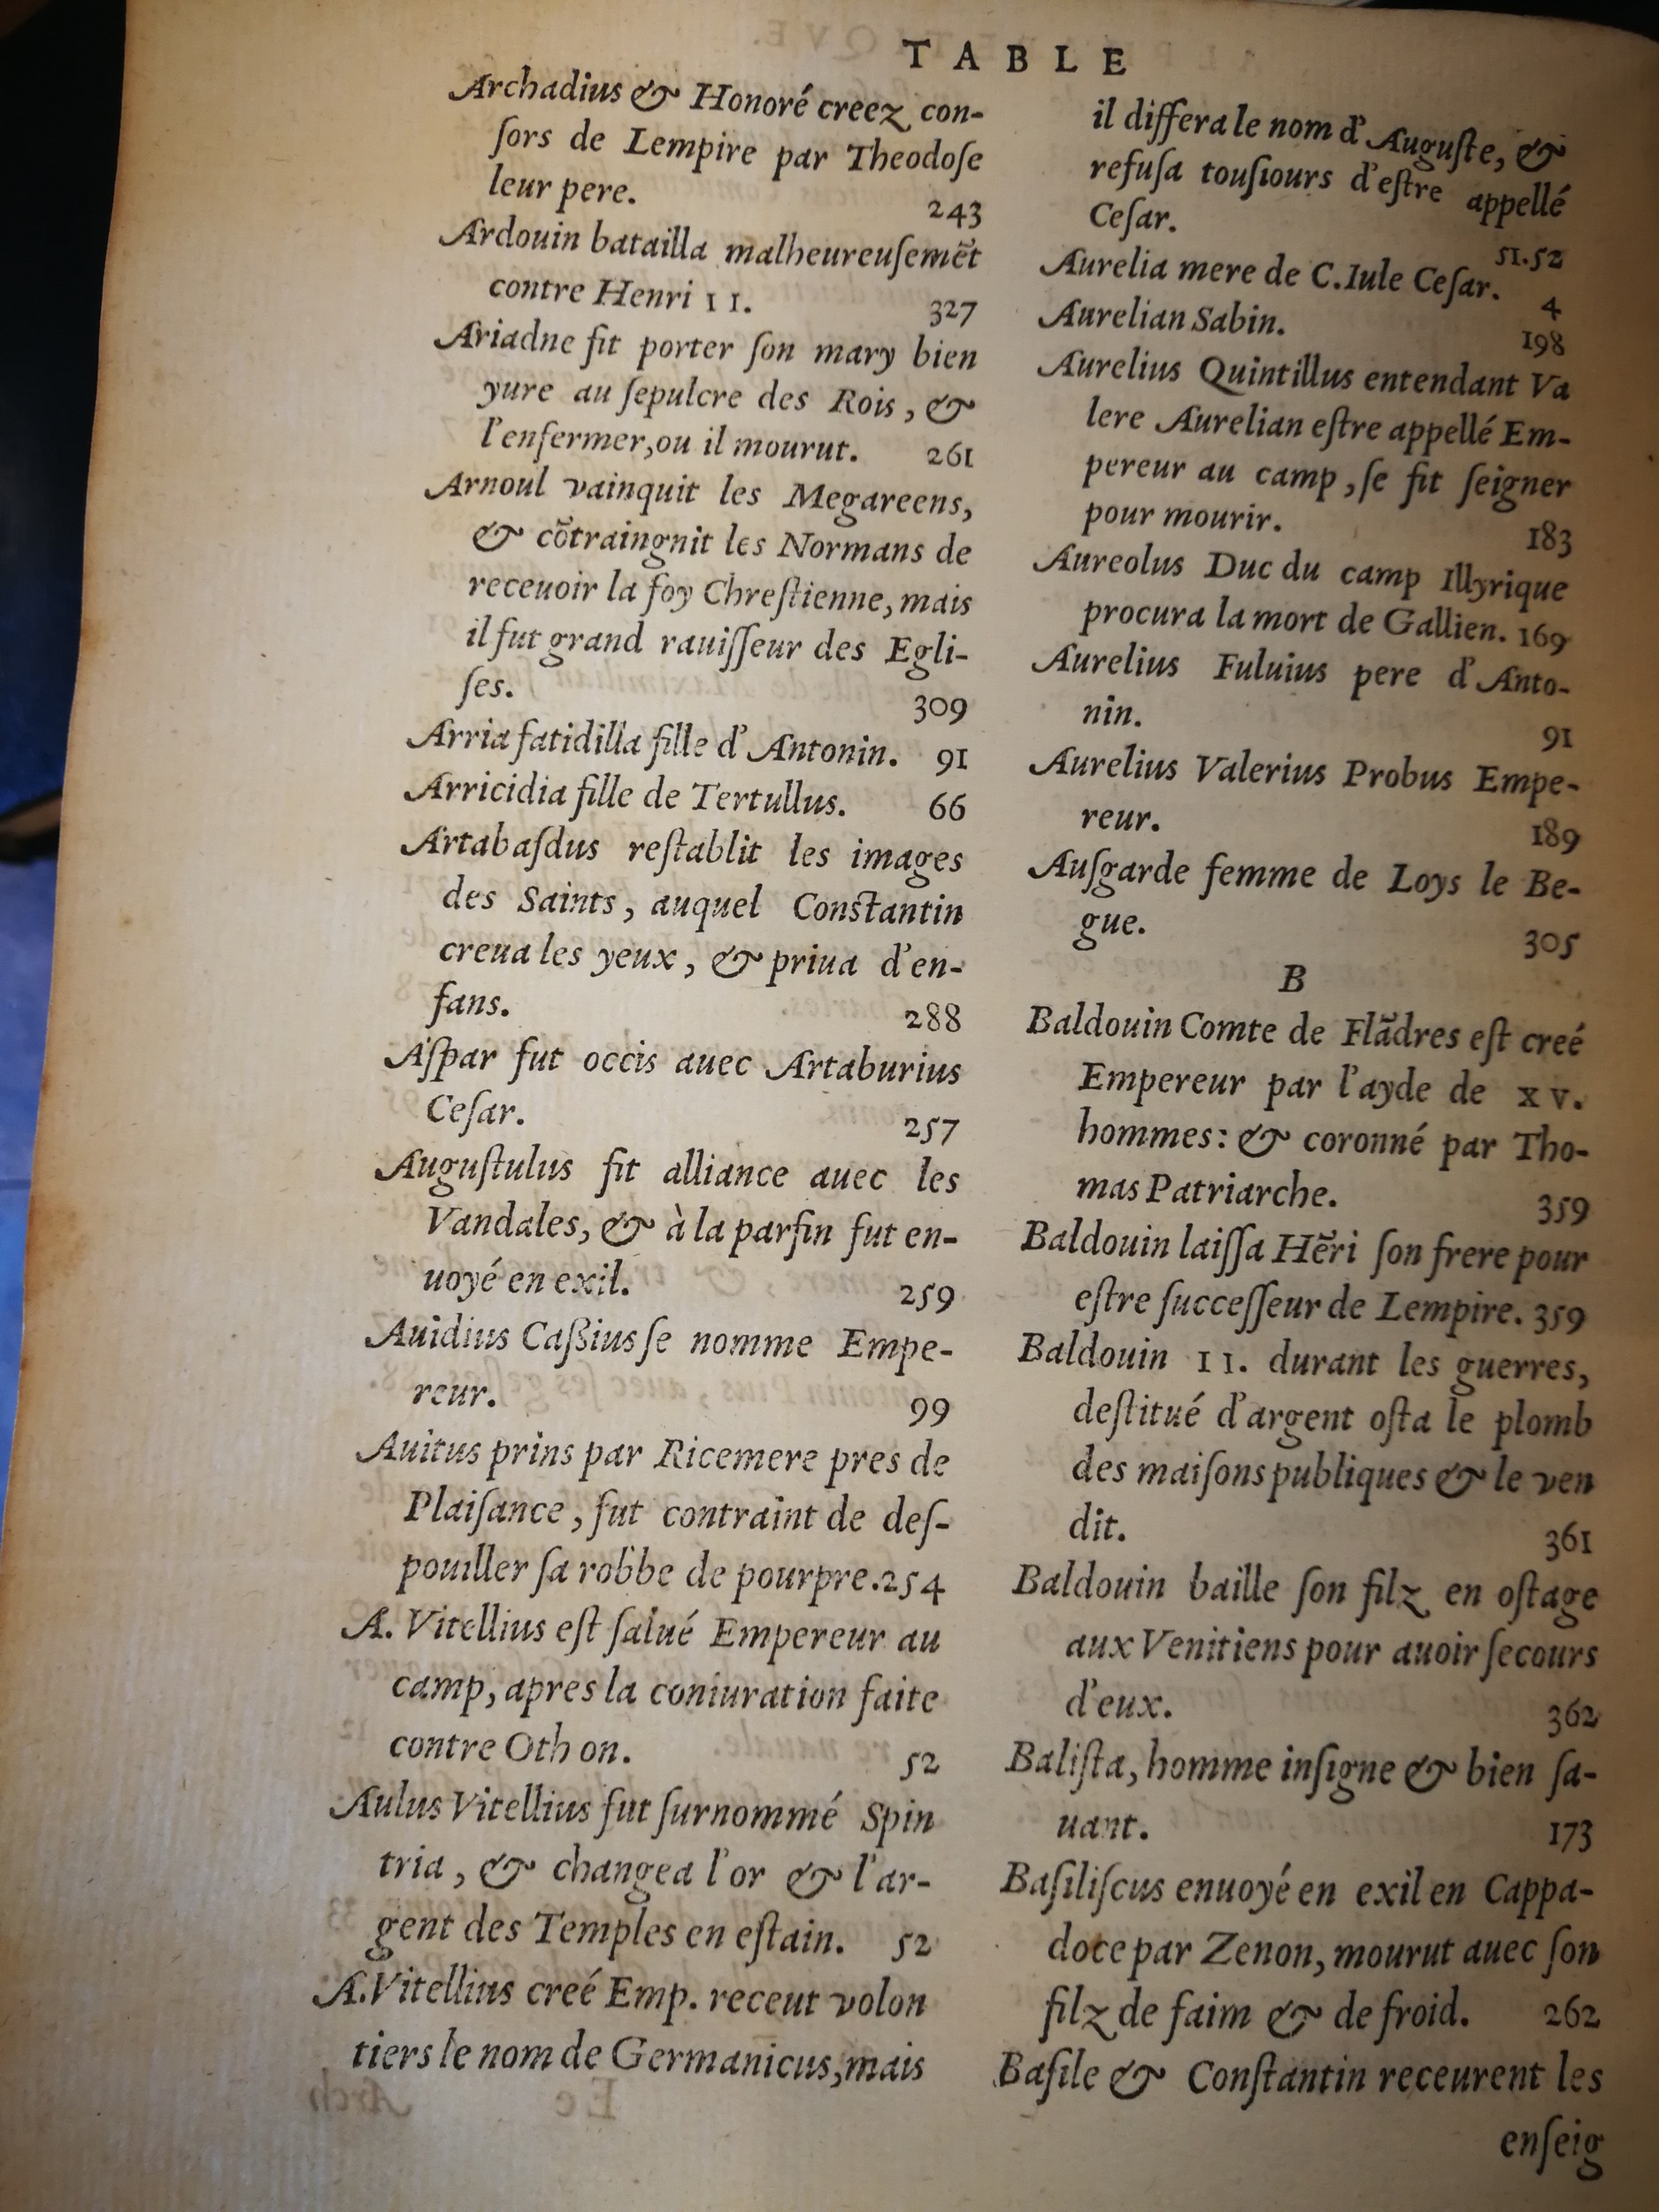 TABLE
Archadius & Honoré creez con-
ſors de Lempire par Theodoſe
leur pere. 243
Ardouin batailla malheureuſemēt
contre Henri II. 327
Ariadne fit porter ſon mary bien
yure au ſepulcre des Rois, &
l'enfermer, ou il mourut. 261
Arnoul vainquit les Megareens,
& cōtraingnit les Normans de
receuoir la foy Chreſtienne, mais
il fut grand rauiſſeur des Egli-
ſes. 309
Arria fatidilla fille d'Antonin. 91
Arricidia fille de Tertullus. 66
Artabaſdus reſtablit les images
des Saints, auquel Conſtantin
creua les yeux, & priua d'en-
fans. 288
Aſpar fut occis auec Artaburius
Ceſar. 257
Auguſtulus fit alliance auec les
Vandales, & à la parfin fut en-
uoyé en exil. 259
Auidius Caßius ſe nomme Empe-
reur. 99
Auitus prins par Ricemere pres de
Plaiſance, fut contraint de deſ-
pouiller ſa robbe de pourpre. 254
A. Vitellius eſt ſalué Empereur au
camp, apres la coniuration faite
contre Othon. 52
Aulus Vitellius fut ſurnommé Spin
tria, & changea l'or & l'ar-
gent des Temples en eſtain. 52
A. Vitellius creé Emp. receut volon
tiers le nom de Germanicus, mais
il differa le nom d'Auguſte, &
refuſa touſiours d'eſtre appellé
Ceſar. 51.52
Aurelia mere de C. Iule Ceſar. 4
Aurelian Sabin. 198
Aurelius Quintillus entendant Va
lere Aurelian eſtre appellé Em-
pereur au camp, ſe fit ſeigner
pour mourir. 183
Aureolus Duc du camp Illyrique
procura la mort de Gallien. 169
Aurelius Fuluius pere d'Anto-
nin. 91
Aurelius Valerius Probus Empe-
reur. 189
Auſgarde femme de Loys le Be-
gue. 305
B
Baldouin Comte de Flādres eſt creé
Empereur par l'ayde de XV.
hommes: & coronné par Tho-
mas Patriarche. 359
Baldouin laiſſa Hēri ſon frere pour
eſtre ſucceſſeur de Lempire. 359
Baldouin II. durant les guerres,
deſtitué d'argent oſta le plomb
des maiſons publiques & le ven
dit. 361
Baldouin baille ſon filz en oſtage
aux Venitiens pour auoir ſecours
d'eux. 362
Baliſta, homme inſigne & bien ſa-
uant. 173
Baſiliſcus enuoyé en exil en Cappa-
doce par Zenon, mourut auec ſon
filz de faim & de froid. 262
Baſile & Conſtantin receurent les
enſeig